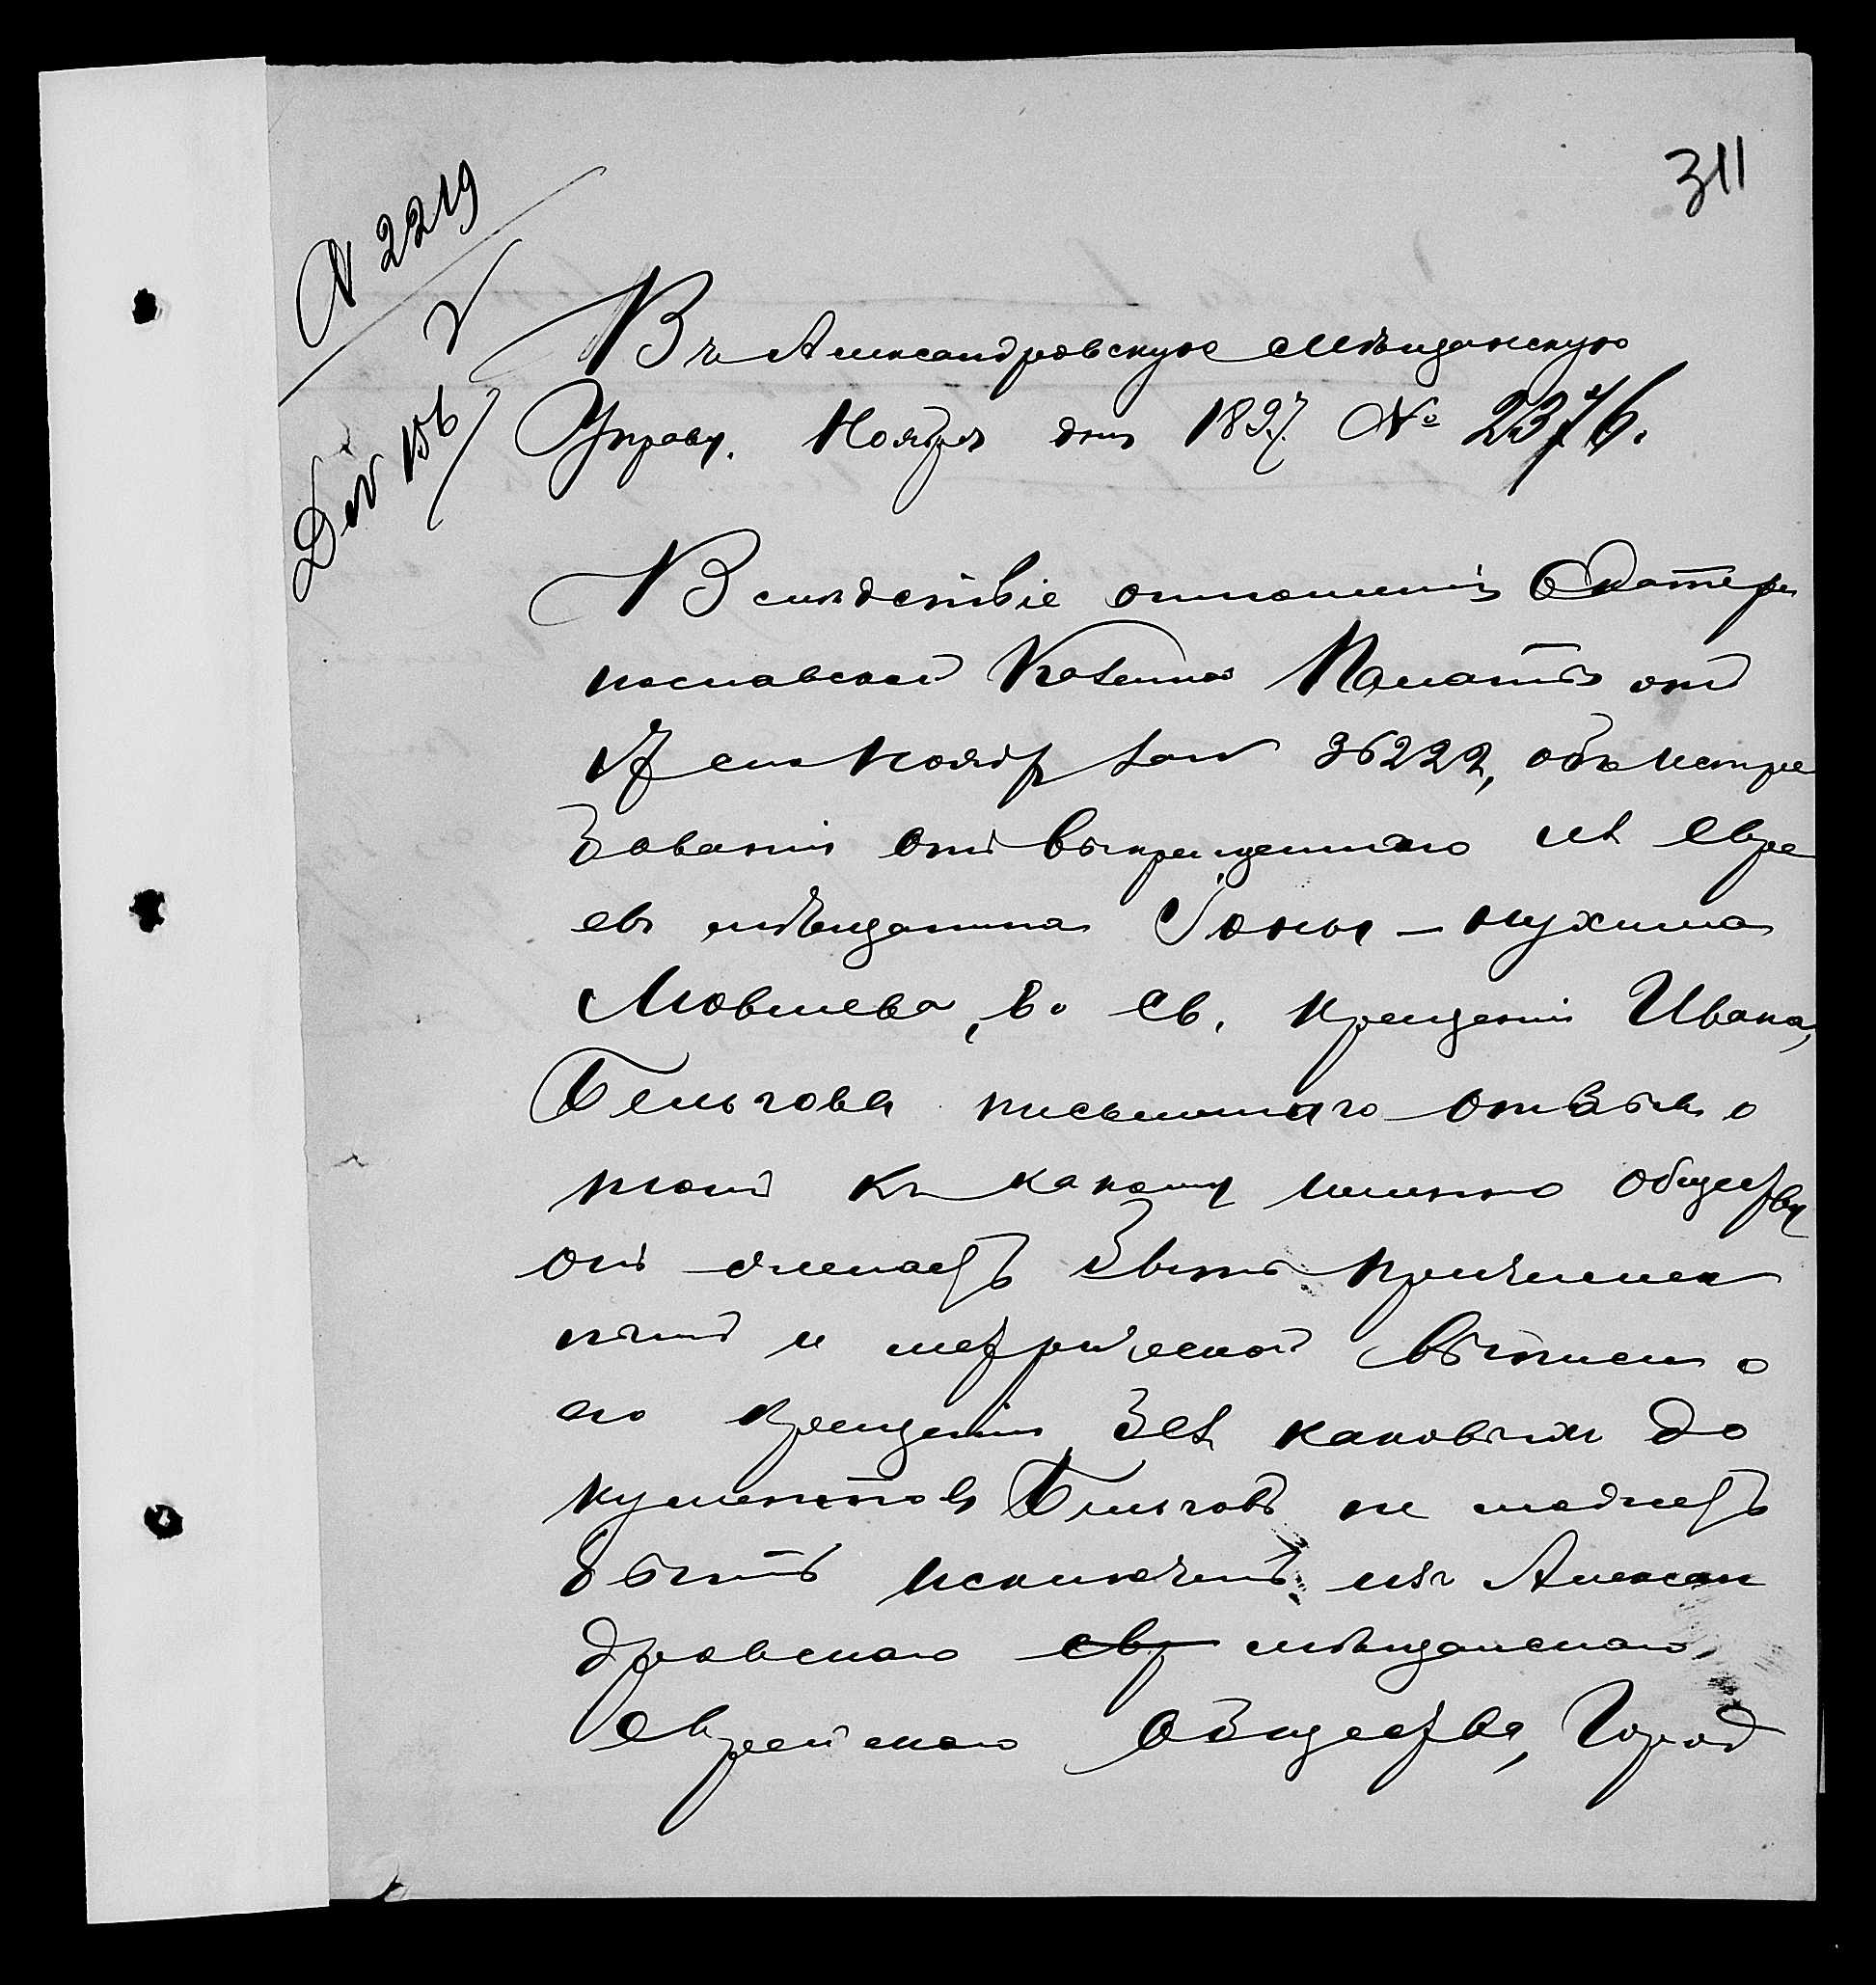 311
№ 2219
Въ Александровскую мѣщанскую
Управу. Ноября дня 1897 № 2376.
Вслѣдствіе отношенія Екатери
нославской Казенной Палаты отъ
17 сего Ноября за № 36222, объ истре
бованіи отъ выкрещеннаго изъ Евре
евъ мѣщанина Іоны-Нухима
Мовшева, во Св. Крещеніи Ивана,
Бельгова письменнаго отзыва о
томъ къ какому именно обществу
онъ желаетъ быть причислен
нымъ и метрической выписи о
его крещеніи без каковыхъ до
кументовъ Бельговъ не можетъ
быть исключенъ изъ Алексан
дровскаго евр мѣщанскаго,
Еврейскаго Общества, Город